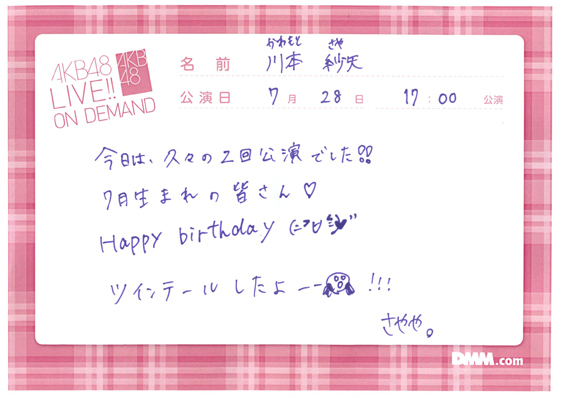 AKB48
LIVE!!
ON DEMAND
AKB
48
かわもと さや
名前 川本 紗矢
公演日 7月 28日 17:00 公演
今日は、久々の2回公演でした!!
7月生まれの皆さん♡
Happy birthday
ツインテールしたよーー !!!
さやや。
DMM.com